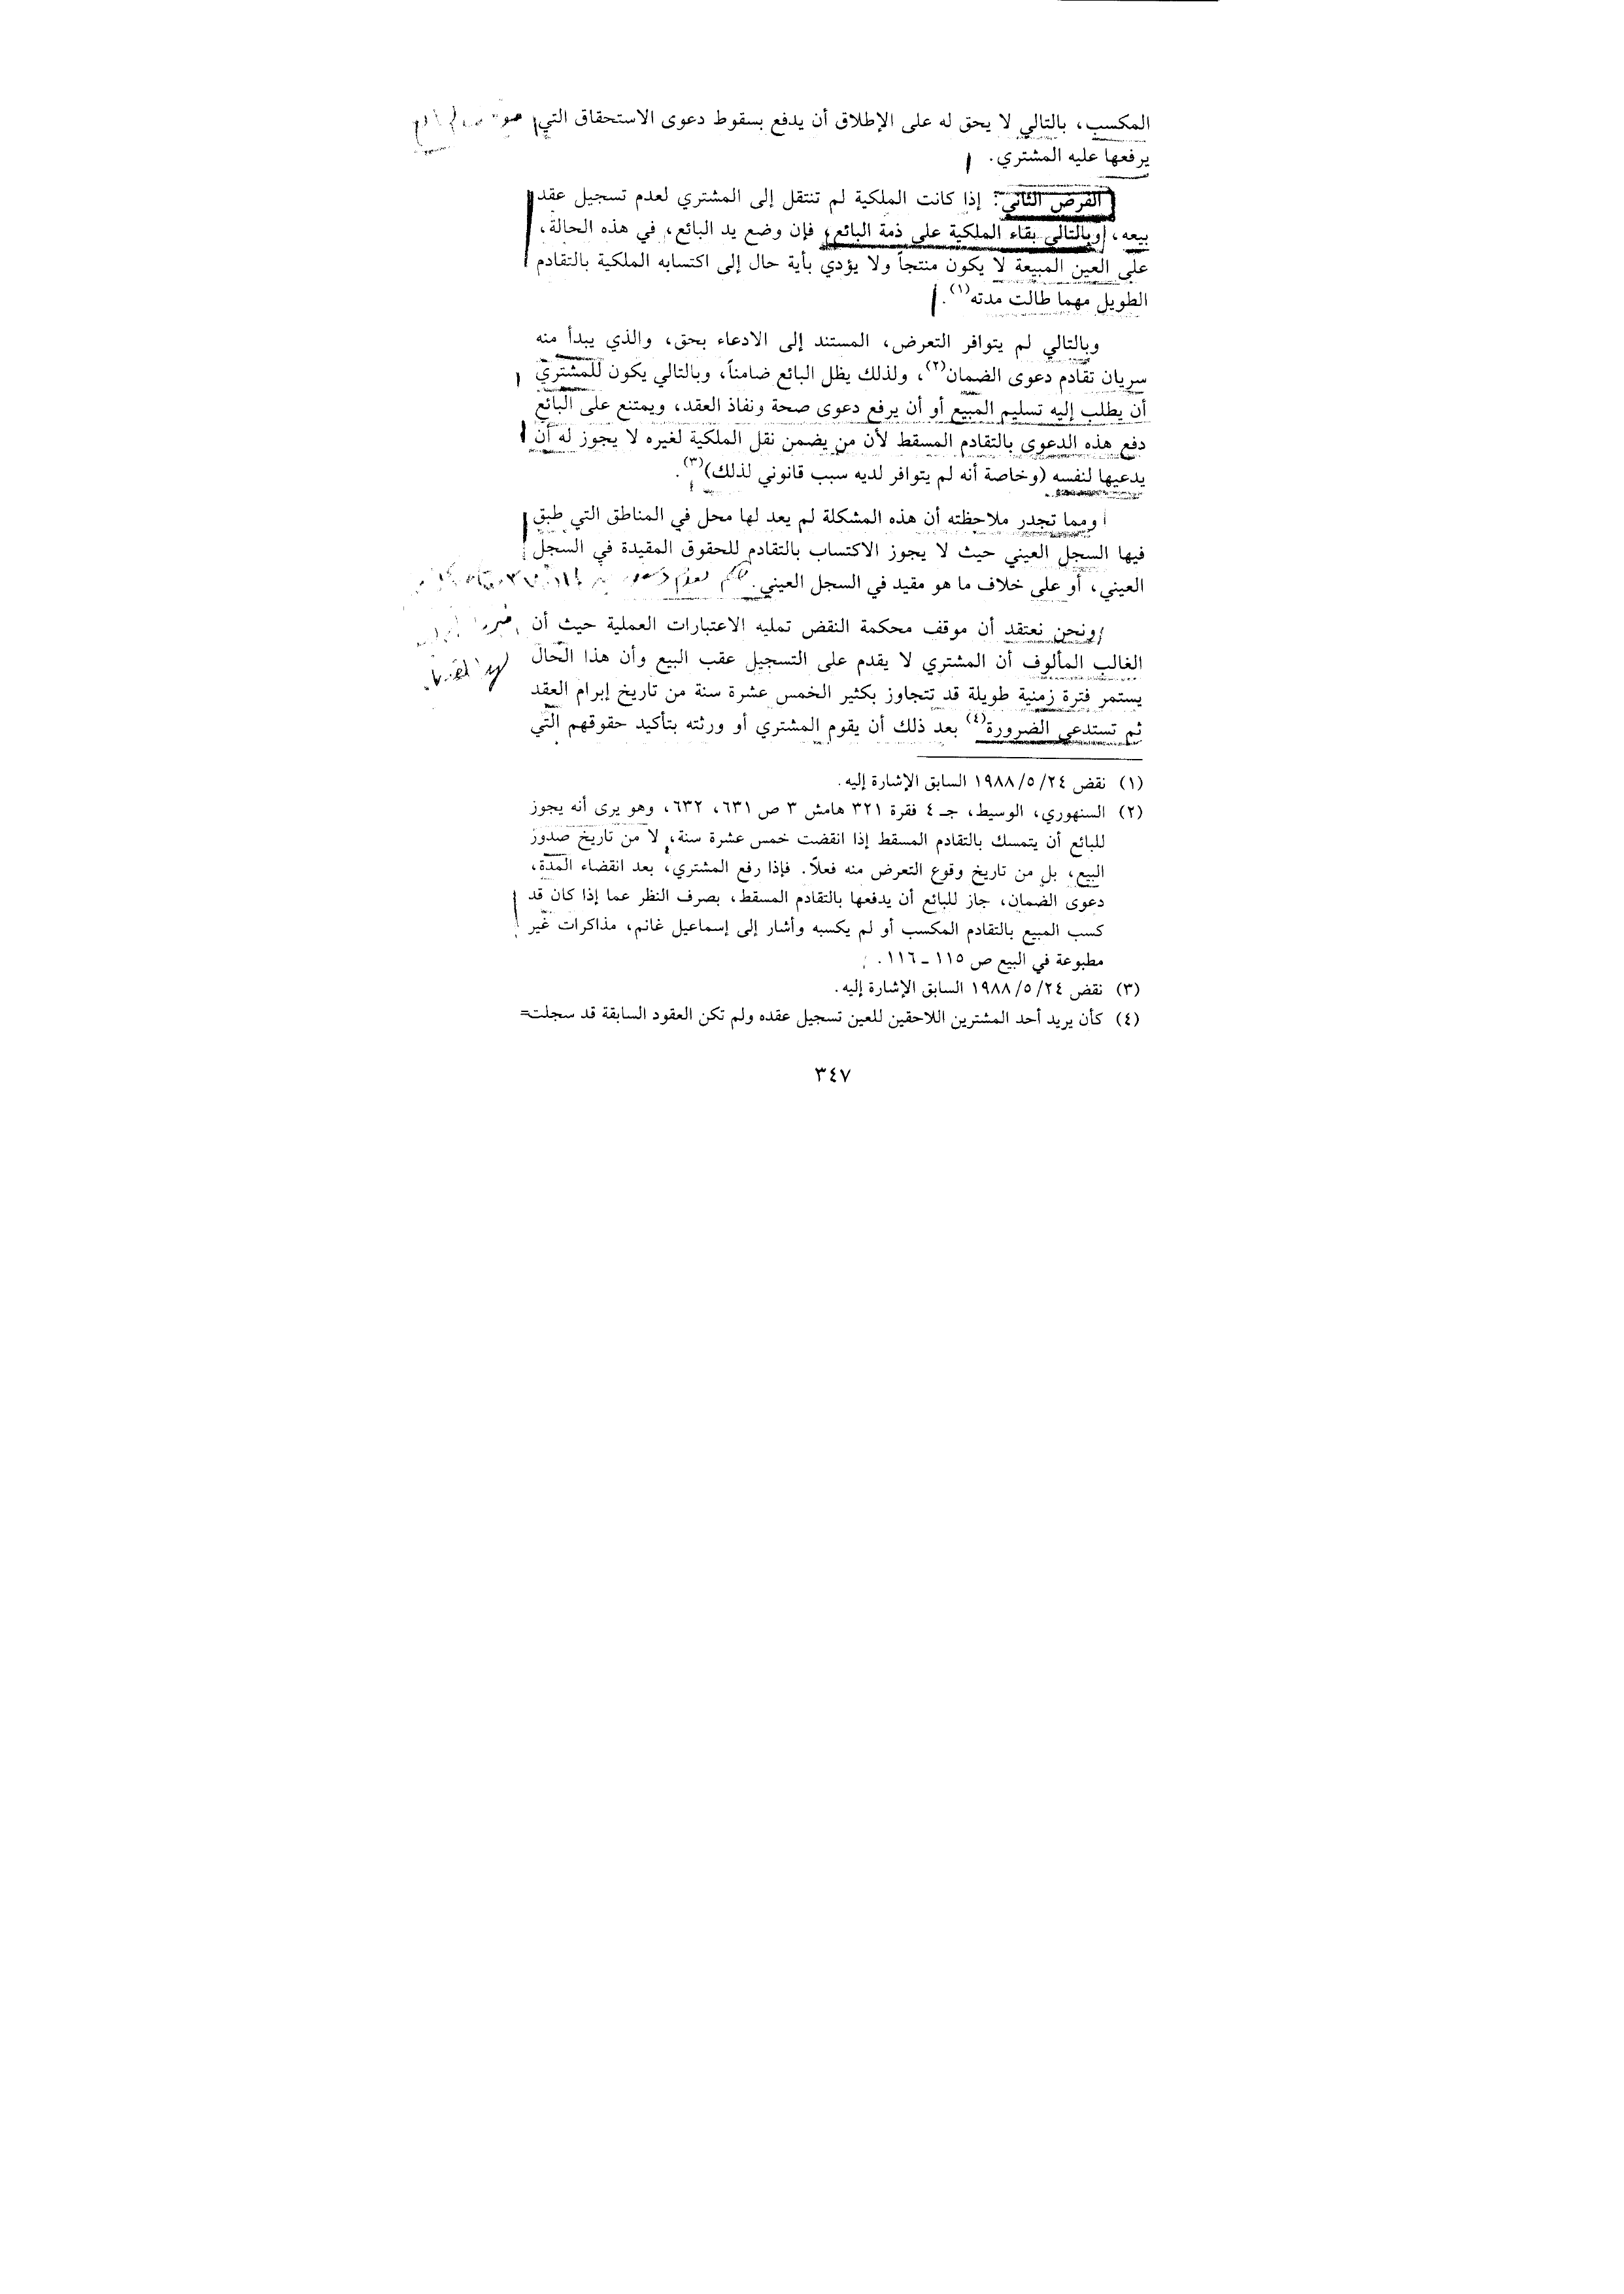 المكسب، بالتالي لا يحق له على الإطلاق أن يدفع بسقوط دعوى الاستحقاق التي
يرفعها عليه المشتري.
الفرض الثاني: إذا كانت الملكية لم تنتقل إلى المشتري لعدم تسجيل عقد
بيعه، وبالتالي بقاء الملكية على ذمة البائع، فإن وضع يد البائع، في هذه الحالة،
على العين المبيعة لا يكون منتجاً ولا يؤدي بأية حال إلى اكتسابه الملكية بالتقادم
الطويل مهما طالت مدته(١).
وبالتالي لم يتوافر التعرض، المستند إلى الادعاء بحق، والذي يبدأ منه
سريان تقادم دعوى الضمان(٢)، ولذلك يظل البائع ضامناً، وبالتالي يكون للمشتري
أن يطلب إليه تسليم المبيع أو أن يرفع دعوى صحة ونفاذ العقد، ويمتنع على البائع
دفع هذه الدعوى بالتقادم المسقط لأن من يضمن نقل الملكية لغيره لا يجوز له أن
يدعيها لنفسه (وخاصة أنه لم يتوافر لديه سبب قانوني لذلك)(٣).
ومما تجدر ملاحظته أن هذه المشكلة لم يعد لها محل في المناطق التي طبق
فيها السجل العيني حيث لا يجوز الاكتساب بالتقادم للحقوق المقيدة في السجل
العيني، أو على خلاف ما هو مقيد في السجل العيني.
ونحن نعتقد أن موقف محكمة النقض تمليه الاعتبارات العملية حيث أن
الغالب المألوف أن المشتري لا يقدم على التسجيل عقب البيع وأن هذا الحال
يستمر فترة زمنية طويلة قد تتجاوز بكثير الخمس عشرة سنة من تاريخ إبرام العقد
ثم تستدعي الضرورة(٤) بعد ذلك أن يقوم المشتري أو ورثته بتأكيد حقوقهم التي
(١) نقض ١٩٨٨/٥/٢٤ السابق الإشارة إليه.
(٢) السنهوري، الوسيط، جـ ٤ فقرة ٣٢١ هامش ٣ ص ٦٣١، ٦٣٢، وهو يرى أنه يجوز
للبائع أن يتمسك بالتقادم المسقط إذا انقضت خمس عشرة سنة، لا من تاريخ صدور
البيع، بل من تاريخ وقوع التعرض منه فعلاً. فإذا رفع المشتري، بعد انقضاء المدة،
دعوى الضمان، جاز للبائع أن يدفعها بالتقادم المسقط، بصرف النظر عما إذا كان قد
كسب المبيع بالتقادم المكسب أو لم يكسبه وأشار إلى إسماعيل غانم، مذاكرات غير
مطبوعة في البيع ص ١١٥ ـ ١١٦.
(٣) نقض ١٩٨٨/٥/٢٤ السابق الإشارة إليه.
(٤) كأن يريد أحد المشترين اللاحقين للعين تسجيل عقده ولم تكن العقود السابقة قد سجلت=
٣٤٧